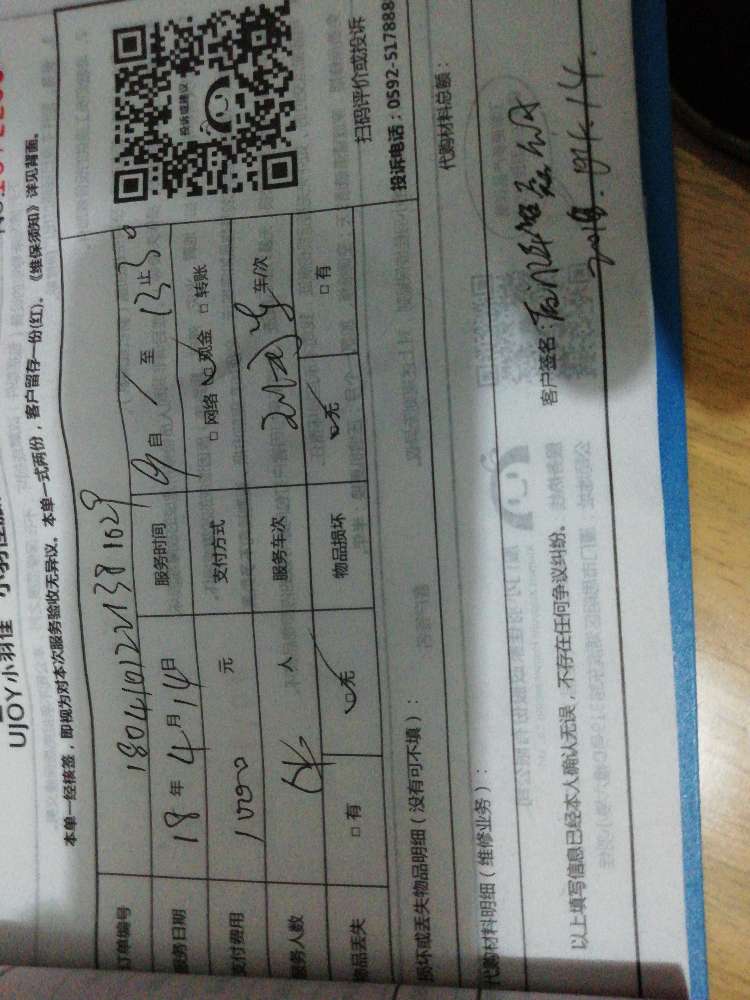 UJOY小羽佳
本单一经核签，即视为对本次服务验收无异议。本单一式两份，客户留存一份(红)、《维保须知》详见背面。
订单编号 1804101221381629
服务日期 18年4月14日 服务时间 9 自 / 至 13 止 30
支付费用 1000 元 支付方式 □网络 ☑现金 □转账
服务人数 6 人 服务车次 车/次
物品丢失 □有 ☑无 物品损坏 ☑无 □有
投诉或建议
扫码评价或投诉
投诉电话：0592-517888
损坏或丢失物品明细（没有可不填）：
代购材料明细（维修业务）： 代购材料总额：
以上填写信息已经本人确认无误，不存在任何争议纠纷。 客户签名：
2018.04.14.